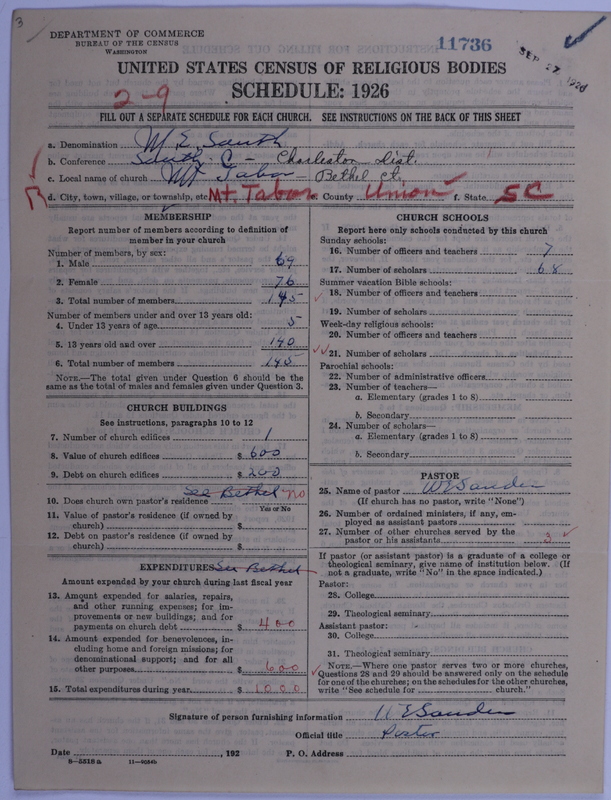 3
DEPARTMENT OF COMMERCE
BUREAU OF THE CENSUS
WASHINGTON
11736
SEP 27 1926
UNITED STATES CENSUS OF RELIGIOUS BODIES
2-9
SCHEDULE: 1926
FILL OUT A SEPARATE SCHEDULE FOR EACH CHURCH. SEE INSTRUCTIONS ON THE BACK OF THIS SHEET
a. Denomination M. E. South
b. Conference South C - Charleston Dist.
c. Local name of church Mt Tabor - Bethel Ct.
d. City, town, village, or township, etc. Mt. Tabor e. County Union f. State SC
MEMBERSHIP
Report number of members according to definition of
member in your church
Number of members, by sex:
1. Male 69
2. Female 76
3. Total number of members 145
Number of members under and over 13 years old:
4. Under 13 years of age 5
5. 13 years old and over 140
6. Total number of members 145
NOTE.—The total given under Question 6 should be the
same as the total of males and females given under Question 3.
CHURCH BUILDINGS
See instructions, paragraphs 10 to 12
7. Number of church edifices 1
8. Value of church edifices $ 600
9. Debt on church edifices $ 200
See Bethel no
10. Does church own pastor's residence
Yes or No
11. Value of pastor's residence (if owned by
church) $
12. Debt on pastor's residence (if owned by
church) $
EXPENDITURES See Bethel
Amount expended by your church during last fiscal year
13. Amount expended for salaries, repairs,
and other running expenses; for im-
provements or new buildings; and for
payments on church debt $ 400
14. Amount expended for benevolences, in-
cluding home and foreign missions; for
denominational support; and for all
other purposes $ 600
15. Total expenditures during year $ 1000
CHURCH SCHOOLS
Report here only schools conducted by this church
Sunday schools:
16. Number of officers and teachers 7
17. Number of scholars 68
Summer vacation Bible schools:
18. Number of officers and teachers
19. Number of scholars
Week-day religious schools:
20. Number of officers and teachers
21. Number of scholars
Parochial schools:
22. Number of administrative officers
23. Number of teachers—
a. Elementary (grades 1 to 8)
b. Secondary
24. Number of scholars—
a. Elementary (grades 1 to 8)
b. Secondary
PASTOR
25. Name of pastor W E Sanders
(If church has no pastor, write "None")
26. Number of ordained ministers, if any, em-
ployed as assistant pastors
27. Number of other churches served by the
pastor or his assistants 3
If pastor (or assistant pastor) is a graduate of a college or
theological seminary, give name of institution below. (If
not a graduate, write "No" in the space indicated.)
Pastor:
28. College
29. Theological seminary
Assistant pastor:
30. College
31. Theological seminary
NOTE.—Where one pastor serves two or more churches,
Questions 28 and 29 should be answered only on the schedule
for one of the churches; on the schedules for the other churches,
write "See schedule for church."
Signature of person furnishing information W E Sanders
Official title Pastor
Date , 192 P. O. Address
8-5318 a